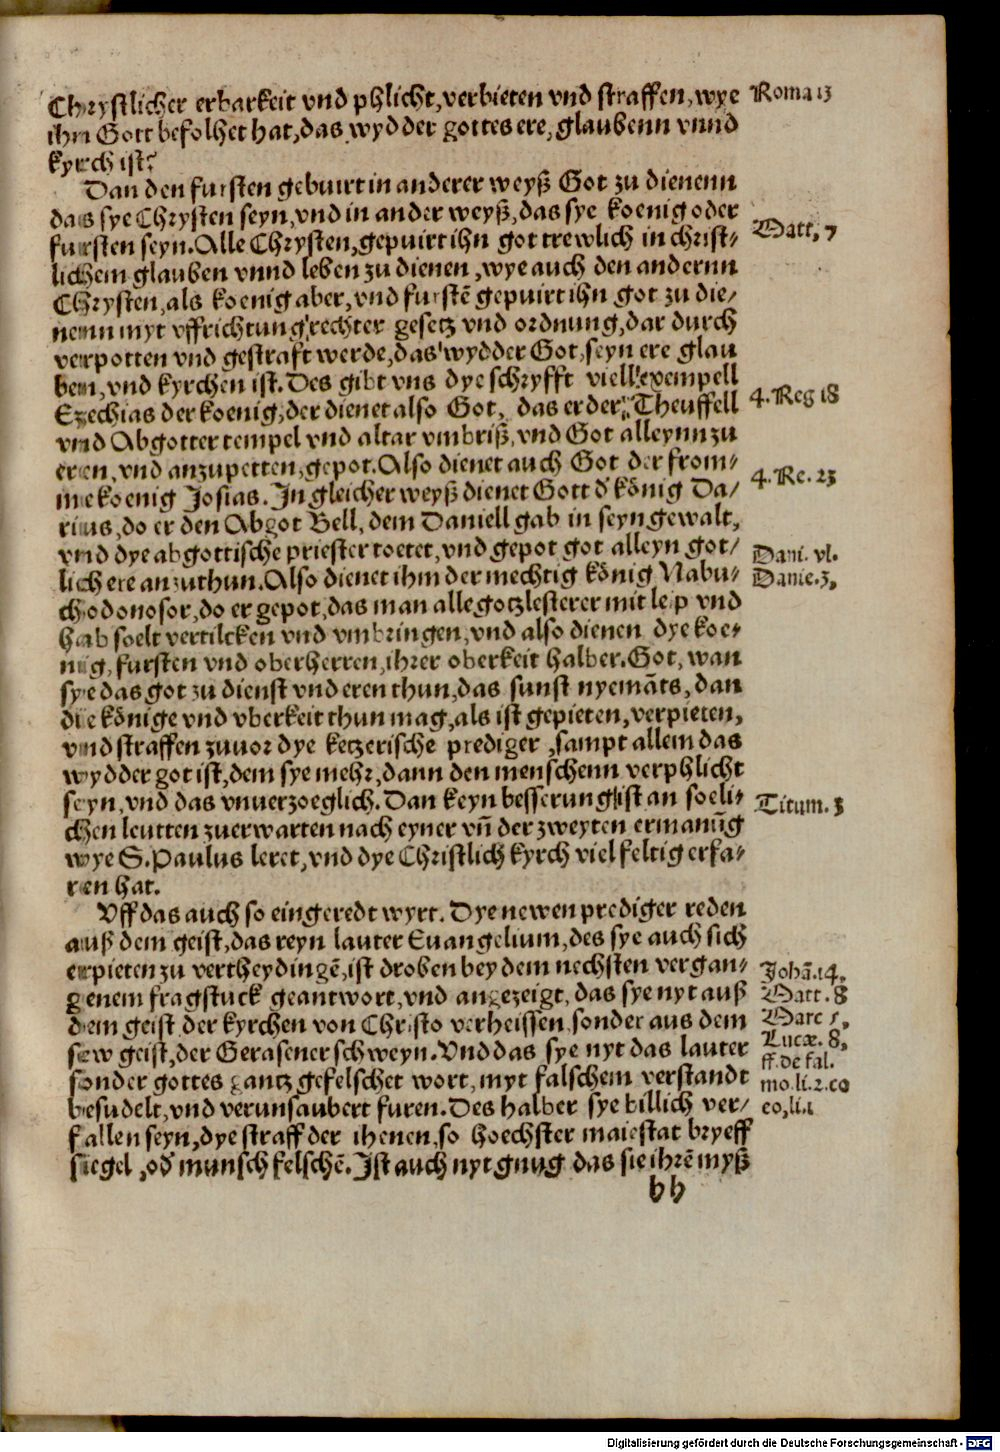 Chrystlicher erbarkeit vnd phlicht, verbieten vnd straffen, wye
ihn Gott befolhet hat, das wydder gottes ere, glaubenn vnnd
kyrch ist?
Dan den fursten gebuirt in anderer weyß Got zu dienenn
das sye Chrysten seyn, vnd in ander weyß, das sye koenig oder
fursten seyn. Alle Chrysten, gepuirt ihn got trewlich in christ-
lichem glauben vnnd leben zu dienen, wye auch den andernn
Chrysten, als koenig aber, vnd furstē gepuirt ihn got zu die-
nenn myt vffrichtung rechter gesetz vnd ordnung, dar durch
verpotten vnd gestraft werde, das wydder Got, seyn ere glau
ben, vnd kyrchen ist. Des gibt vns dye schryfft viell exempell
Ezechias der koenig, der dienet also Got, das er der Theuffell
vnd Abgotter tempel vnd altar vmbriß, vnd Got alleynn zu
eren, vnd anzupetten, gepot. Also dienet auch Got der from-
me koenig Josias. In gleicher weyß dienet Gott d' könig Da-
rius, do er den Abgot Bell, dem Daniell gab in seyn gewalt,
vnd dye abgottische priester toetet, vnd gepot got alleyn got-
lich ere anzuthun. Also dienet ihm der mechtig könig Nabu-
chodonosor, do er gepot, das man alle gotzlesterer mit leip vnd
hab soelt vertilcken vnd vmbringen, vnd also dienen dye koe-
nig, fursten vnd oberherren, ihrer oberkeit halber. Got, wan
sye das got zu dienst vnd eren thun, das sunst nyemāts, dan
die könige vnd vberkeit thun mag, als ist gepieten, verpieten,
vnd straffen zuuor dye ketzerische prediger, sampt allem das
wydder got ist, dem sye mehr, dann den menschenn verphlicht
seyn, vnd das vnuerzoeglich. Dan keyn besserung ist an soeli-
chen leutten zuerwarten nach eyner vñ der zweyten ermanūg
wye S. Paulus leret, vnd dye Christlich kyrch vielfeltig erfa-
ren hat.
Vff das auch so eingeredt wyrt. Dye newen prediger reden
auß dem geist, das reyn lauter Euangelium, des sye auch sich
erpieten zu vertheydingē, ist droben bey dem nechsten vergan-
genem fragstuck geantwort, vnd angezeigt, das sye nyt auß
dem geist der kyrchen von Christo verheissen, sonder aus dem
sew geist, der Gerasener schweyn. Vnd das sye nyt das lauter
sonder gottes gantz gefelschet wort, myt falschem verstandt
besudelt, vnd verunsaubert furen. Des halber sye billich ver-
fallen seyn, dye straff der ihenen, so hoechster maiestat bryeff
siegel, od' munsch felschē. Ist auch nyt gnug das sie ihrē myß
bb
Roma 13
Matt, 7
4. Reg 18
4. Re. 23
Dani. vl.
Danie. 3,
Titum. 3
Johā. 14,
Matt. 8
Marc 5,
Lucæ. 8,
ff. de fal.
mo. li. 2. co
eo, li. 1
Digitalisierung gefördert durch die Deutsche Forschungsgemeinschaft - DFG